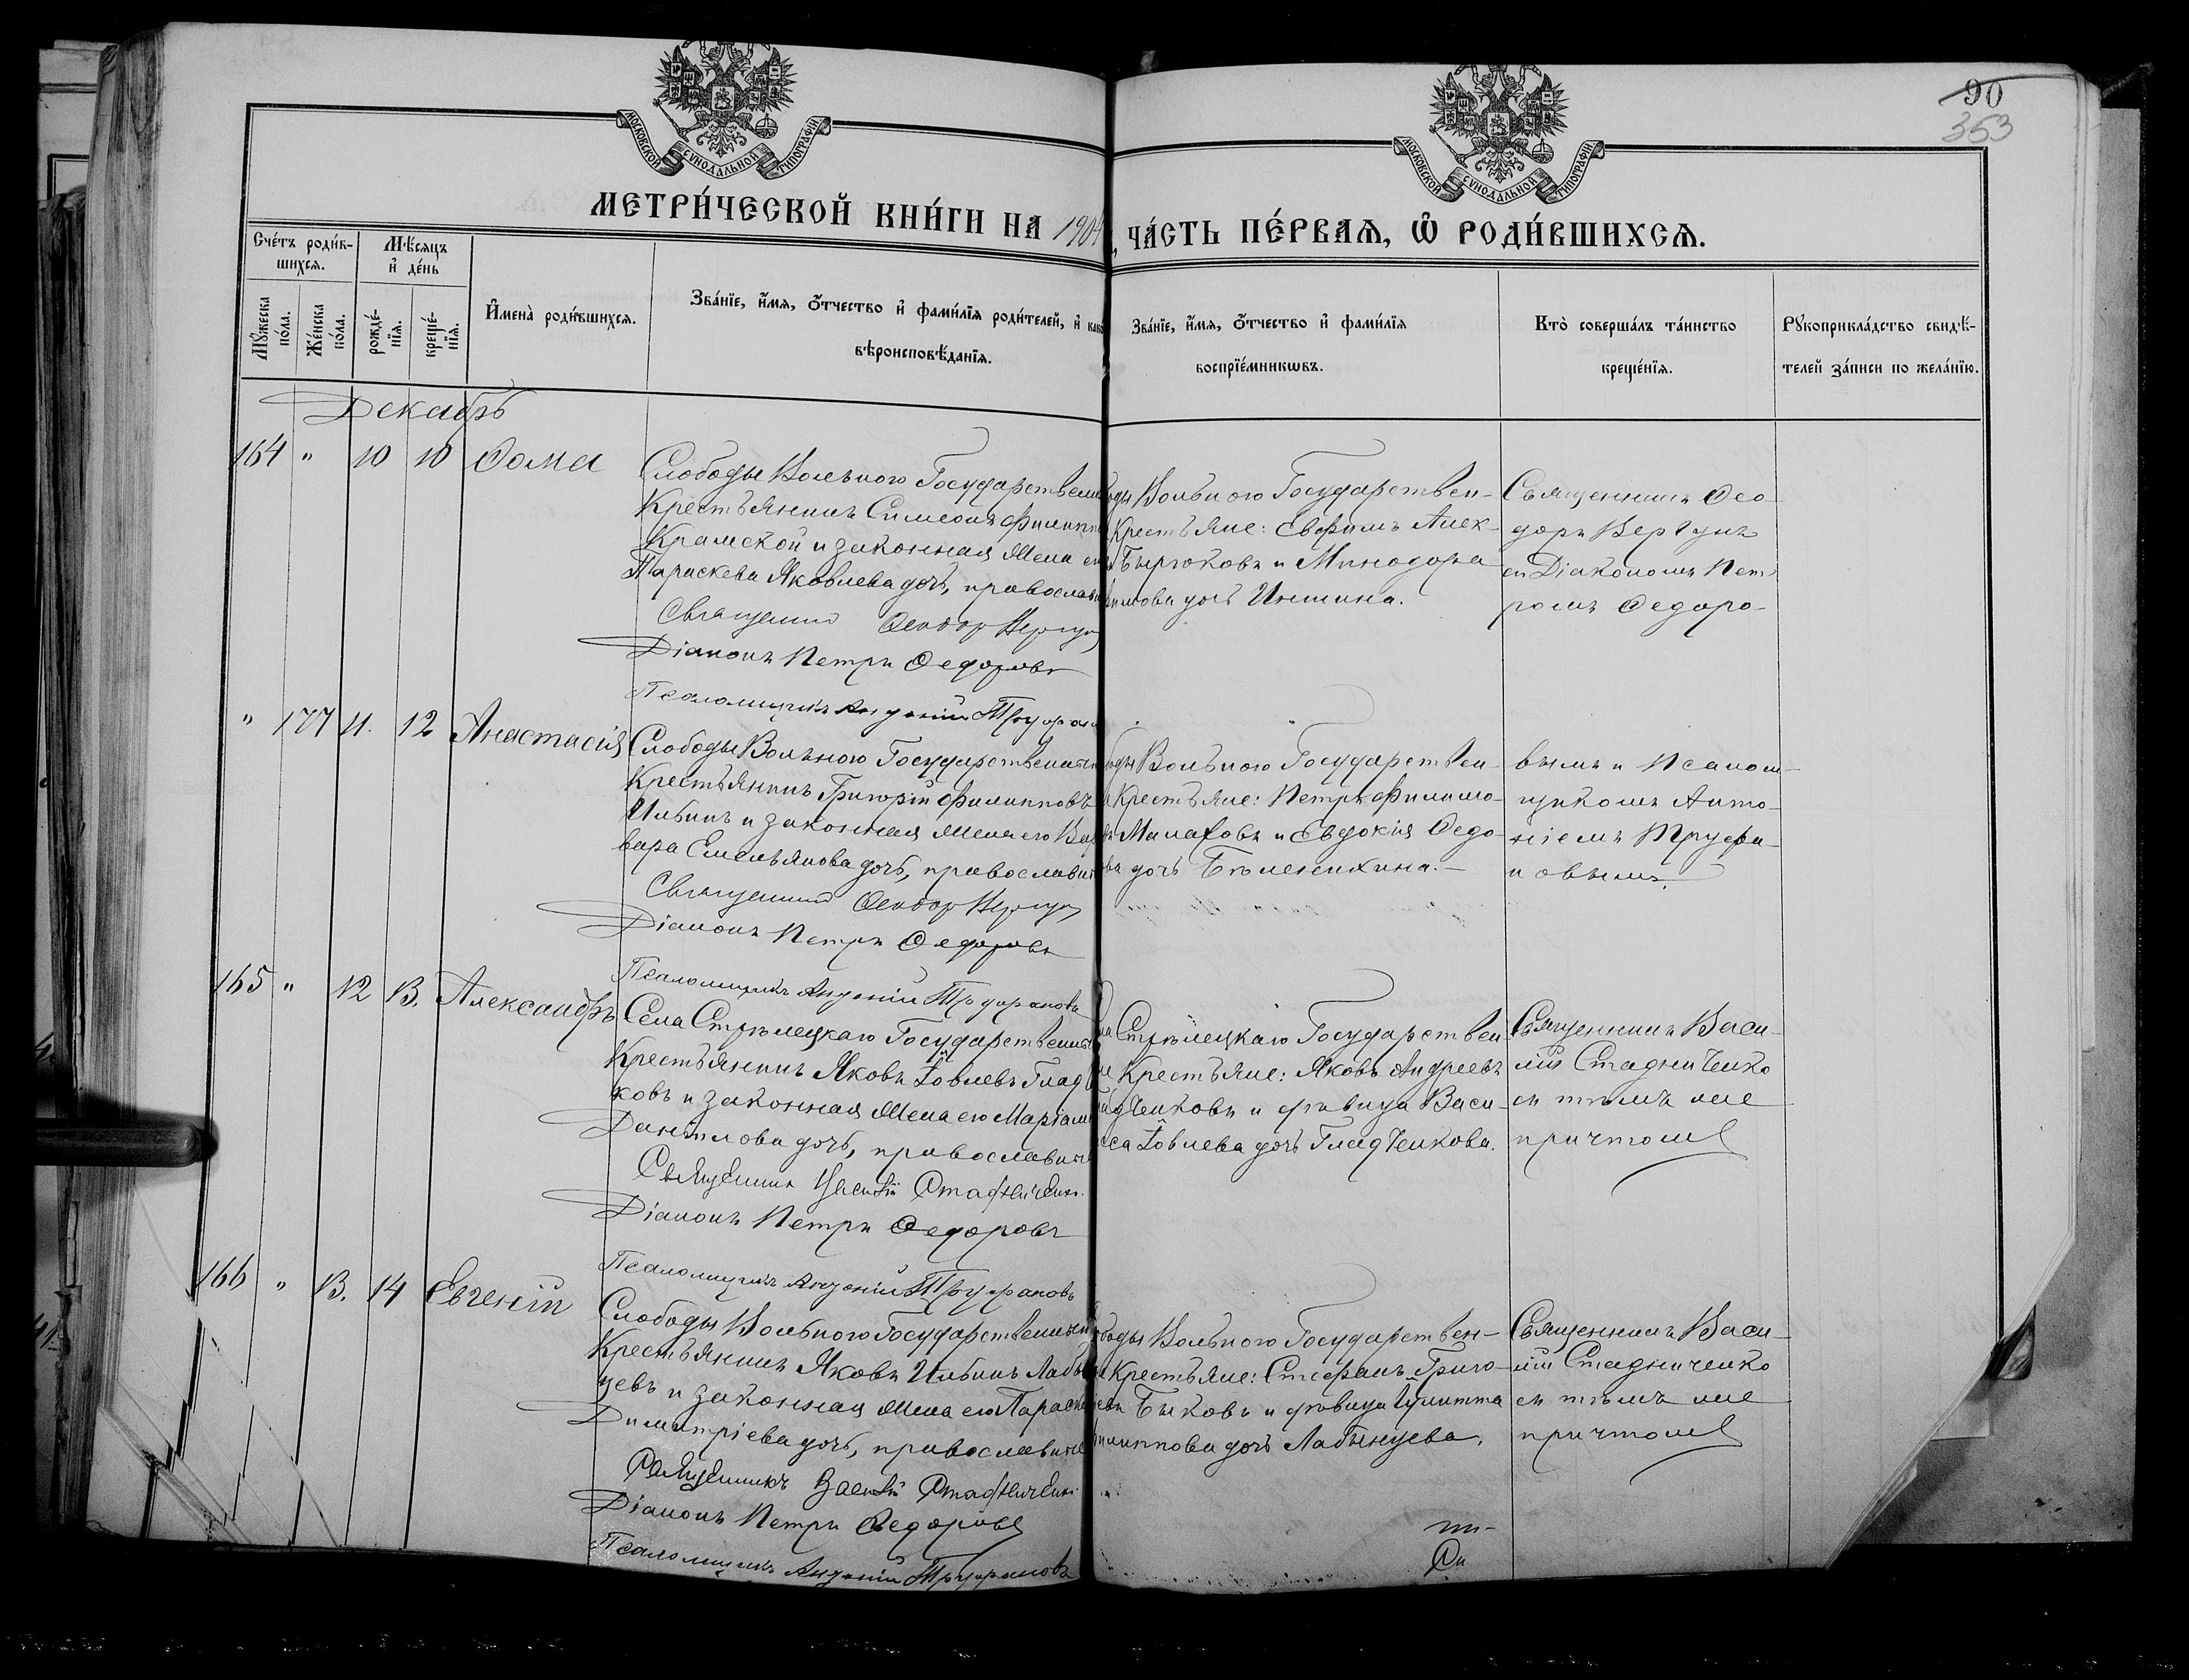 90
353
МОСКОВСКОЙ СѴНОДАЛЬНОЙ ТИПОГРАФІИ
МОСКОВСКОЙ СѴНОДАЛЬНОЙ ТИПОГРАФІИ
МЕТРИ́ЧЕСКОЙ КНИ́ГИ НА 1904
, ЧА́СТЬ ПЕ́РВАѦ, Ѡ҃ РОДИ́ВШИХСѦ.
Сче́тъ роди́в-
шихсѧ.
Мѣ́сяцъ
и҆ де́нь
Мꙋ́жеска
по́ла.
Же́нска
по́ла.
рожде́-
нїѧ.
креще́-
нїѧ.
И҆мена̀ роди́вшихсѧ.
Зва́нїе, и҆́мѧ, ѻ҆́тчество и҆ фами́лїѧ роди́телей, и҆ како
вѣроисповѣ́данїѧ.
Зва́нїе, и҆́мѧ, ѻ҆́тчество и҆ фами́лїѧ
воспрїе́мникѡвъ.
Кто̀ соверша́лъ та́инство
креще́нїѧ.
Рꙋкоприкла́дство свидѣ́-
телей за́писи по жела́нїю.
Декабрь
164 " 10 10 Ѳома
Слободы Вольного Государствен
Крестьянинъ Симеонъ Филипп
Крамской и законная жена ег
Параскева Яковлева дочь, православн
Священник Ѳеодор Вергун
Діаконъ Петръ Ѳедоровъ
Псаломщикъ Антоній Труфан
оды Вольного Государствен-
Крестьяне: Евфимъ Алек-
Бирюковъ и Минодора
имова дочь Иншина.
Священникъ Ѳео
доръ Вергунъ
съ Діакономъ Пет
ромъ Ѳедоро-
" 177 11. 12 Анастасія
Слободы Вольного Государственны
Крестьянинъ Григорій Филипповъ
Ильинъ и законная жена его Вар
вара Емельянова дочь, православн
Священник Ѳеодор Вергун
Діаконъ Петръ Ѳедоровъ
Псаломщикъ Антоній Труфановъ
оды Вольного Государствен-
Крестьяне: Петръ Филимо-
Малаховъ и Евдокія Ѳедо-
ва дочь Беленихина.
вымъ и Псалом-
щикомъ Анто-
ніемъ Труфа-
новымъ.
165 " 12 13. Александръ
Села Стрѣлецкаго Государственн
Крестьянинъ Яковъ Іовлевъ Глад
ковъ и законная жена его Маріам
Даніилова дочь, православн
Священник Василій Стадниченк
Діаконъ Петръ Ѳедоровъ
Псаломщикъ Антоній Труфановъ
Стрѣлецкаго Государствен
Крестьяне: Яковъ Андреевъ
дченковъ и дѣвица Васи-
са Іовлева дочь Гладченкова.
Священникъ Васи-
лій Стадниченко
съ тѣмъ же
причтомъ
166 " 13. 14 Евгеній
Слободы Вольного Государственны
Крестьянинъ Яковъ Ильинъ Лабын
цевъ и законная жена его Параске
Димитріева дочь, православн
Священникъ Василій Стадниченк
Діаконъ Петръ Ѳедоровъ
Псаломщикъ Антоній Труфановъ
боды Вольного Государствен-
Крестьяне: Стефанъ Григо-
Быковъ и дѣвица Іулитта
илиппова дочь Лабынцева.
Священникъ Васи-
лій Стадниченко
съ тѣмъ же
причтомъ